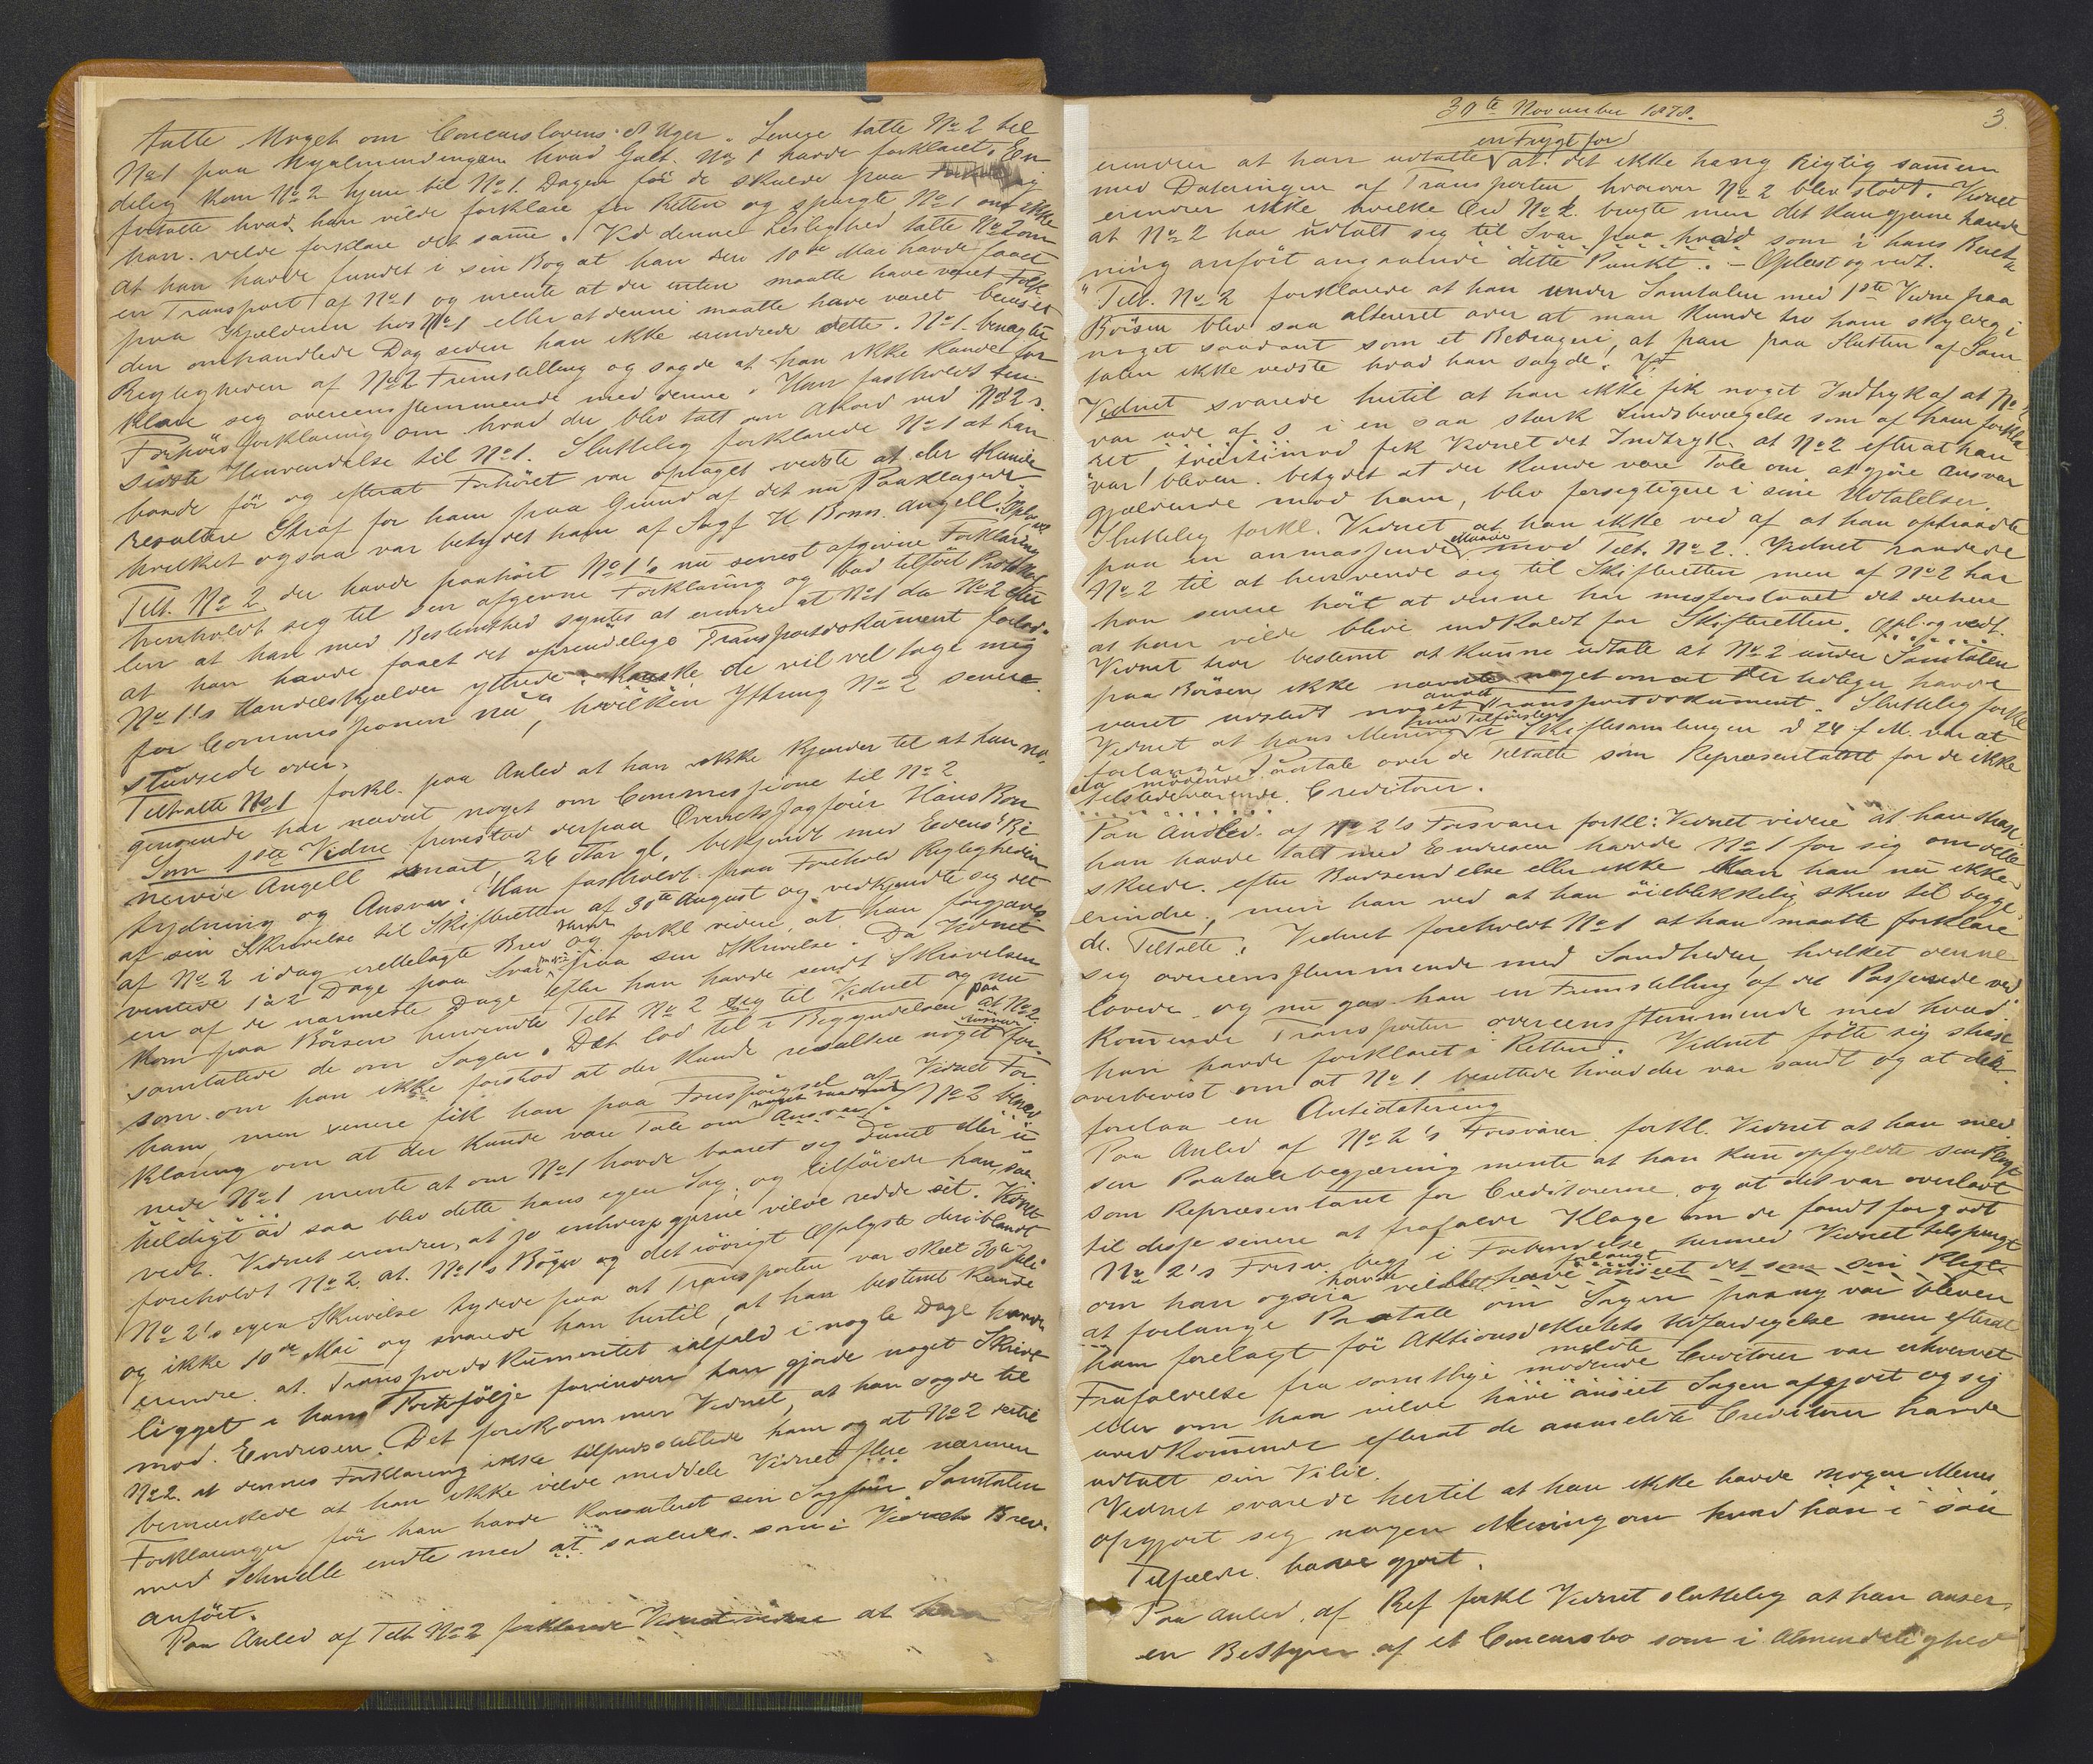 talte Noget om Concurslovens 8 Uger. Senere talte No 2 til
No 1 paa Myalmendingen hvad Galt. No 1 havde forklaret. En
delig kom No 2 hjem til No 1. Dagen før de skulde paa
fortalte hvad han vilde forklare for Retten og spurgte No 1 om ikke
han vilde forklare det samme. Ved denne Leilighed talte No 2 om
at han havde fundet i sin Bog at han den 10de Mai havde faaet
en Transport af No 1 og mente at der enten maatte have været Folk
paa Kjælderen hos No 1 eller at denne maatte have været beruset
den omhandlede Dag siden han ikke erindrede dette. No 1 benægtede
Rigtigheden af No 2 Fremstilling og sagde at han ikke kunde for
klare seg overeensstemmende med denne. Han fastholdt sin
Forhørsforklaring om hvad der blev talt om Akord ved No 2 s.
sidste Henvendelse til No 1. Sluttelig forklarede No 1 at han
baade før og efterat Forhøret var optaget vidste at der kunde
resultere Straf for ham paa Grund af det nu Paaklagede
hvilket ogsaa var betydet ham af Sagf H Bonn. Angell.
Tilt. No 2 der havde paahørt No 1's nu senest afgivne Forklaring
henholdt seg til sin afgivne Forklaring og bad tilført Protokol
len at han med Bestemthed syntes at erindre at No 1 da No 2 efter
at han havde faaet det oprindelige Transportdokument forlod
No 1's Handelskjælder yttrede: Kanske de vil vel tage mig
for Commissionen nu", hvilken Yttring No 2 senere
studsede over.
Tiltalte No 1 forkl. paa Anled at han ikke kjender til at han no
gensinde har nævnt noget om Commissionen til No 2
Som 1ste Vidne fremstod derpaa Overretssagfører Hans Bon
nevie Angell snart 26 Aar gl. bekjendt med Edens Be
tydning og Ansvar. Han fastholdt paa Forehold Rigtigheden
af sin Skrivelse til Skifteretten af 30te August og vedkjendte sig det
af No 2 idag irettelagte Brev og forkl videre, at han forgjæves
ventede 1 à 2 Dage paa Svar paa sin Skrivelse. Da Vidnet
en af de nærmeste Dage efter han havde sendt Skrivelsen
kom paa Børsen henvendte Tilt No 2 seg til Vidnet og nu
samtalede de om Sagen. Det lod til i Begyndelsen paa at No 2
som om han ikke forstod at der kunde resultere noget for
ham men senere fik han paa Forespørgsel af Vidnet For
klaring om at der kunde være Tale om noget saadant Ansvar. No 2 benæg
nede No 1 mente at om No 1 havde baaret seg dumt eller u
heldigt ad saa blev dette hans egen Sag, og tilføiede han,
vedt. Vidnet erindrer, at jo enhver gjerne vilde redde sit. Vidnet
foreholdt No 2 at No 1's Bøger og det iøvrigt Oplyste deriblandt
No 2's egen Skrivelse tydede paa at Transporten var skeet 30te Juli
og ikke 10de Mai og svarede han hertil, at han bestemt kunde
erindre at Transportdokumentet ialfald i nogle Dage havde
ligget i hans Portefølje forinden han gjorde noget Skridt
mod Endresen. Det forekommer Vidnet, at han sagde til
No 2 at dennes Forklaring ikke tilfredsstillede ham og at No 2 hertil
bemærkede at han ikke vilde meddele Vidnet flere nærmere
Forklaringer før han havde konsuleret sin Sagfører Samtalen
med Schnelle endte med at saaledes som i Vidnets Brev
anført.
Paa Anled af Tilt No 2 forklarede Vidnet videre at han
30te November 1878.
3
erindrer at han udtalte en Frygt for at det ikke hang rigtig sammen
med Dateringen af Transporten hvorover No 2 blev stødt. Vidnet
erindrer ikke hvilke Ord No 2 brugte men det kan gjerne hænde
at No 2 har udtalt seg til Svar paa hvad som i hans Beret
ning anført angaaende dette Punkt. - Oplæst og vedt.
Tilt. No 2 forklarede at han under Samtalen med 1ste Vidne paa
Børsen blev saa altereret over at man kunde tro ham skyldig i
noget saadant som et Bedrageri, at han paa Slutten af Sam
talen ikke vidste hvad han sagde.
Vidnet svarede hertil at han ikke fik noget Indtryk af at No 2
var ude af s i en saa stærk Sindsbevægelse som af ham forkla
ret tvertimod fik Vidnet det Indtryk at No 2 efterat han
var bleven betydet at der kunde være Tale om at gjøre Ansvar
gjældende mod ham, blev forsigtigere i sine Udtalelser.
Sluttelig forkl. Vidnet at han ikke ved af at han optraadte
paa en anmassende Maade mod Tilt. No 2. Vidnet raadede
No 2 til at henvende sig til Skifteretten men af No 2 har
han senere hørt at denne har misforstaaet det derhen
at han vilde blive indkaldt for Skifteretten. Opl. og vedt.
Vidnet tror bestemt at kunne udtale at No 2 under Samtalen
paa Børsen ikke nævnte noget om at der tidligere havde
været udstedt noget andet Transportdokument. Sluttelig forkl
Vidnet at hans Mening med Tilførslen i Skiftesamlingen d 24 f M. var at
forlange Paatale over de Tiltalte som Repræsentant for de ikke
mødende tilstedeværende Creditorer.
Paa Anled. af No 2's Forsvarer forkl. Vidnet videre at han strax
han havde talt med Endresen havde No 1 for sig om dette
skede efter Budsendelse eller ikke kan han nu ikke
erindre, men han ved at han øieblikkelig skrev til begge
de Tiltalte. Vidnet foreholdt No 1 at han maatte forklare
sig overeensstemmende med Sandheden, hvilket denne
lovede og nu gav han en Fremstilling af det Passerede ved
kommende Transporten overeensstemmende med hvad
han havde forklaret i Retten. Vidnet følte sig strax
overbevist om at No 1 berettede hvad der var sandt og at det
forelaa en Antidatering
Paa Anled af No 2's Forsvarer forkl. Vidnet at han med
sin Paatalebegjæring mente at han kun opfyldte sin Pligt
som Repræsentant for Creditorerne og at det var overladt
til disse senere at frafalde Klage om de fandt for godt
No 2's Forsv. begj i Forbindelse hermed Vidnet tilspurgt
om han ogsaa havde villet have anseet det som sin Pligt
at forlange Paatale om Sagen paany var bleven
ham forelagt før Aktionsdekretets Udfærdigelse men efterat
Frafaldelse fra samtlige mødende Creditorer var erhvervet
eller om han vilde have anseet Sagen afgjort og sig
uvedkommende efterat de anmeldte Creditorer havde
udtalt sin Vilie.
Vidnet svarede hertil at han ikke havde
opgjort seg nogen Mening om hvad han i saa
Tilfælde havde gjort.
Paa Anled. af Ref forkl Vidnet sluttelig at han anser
en Bestyrer af et Concursbo som i Almindelighed